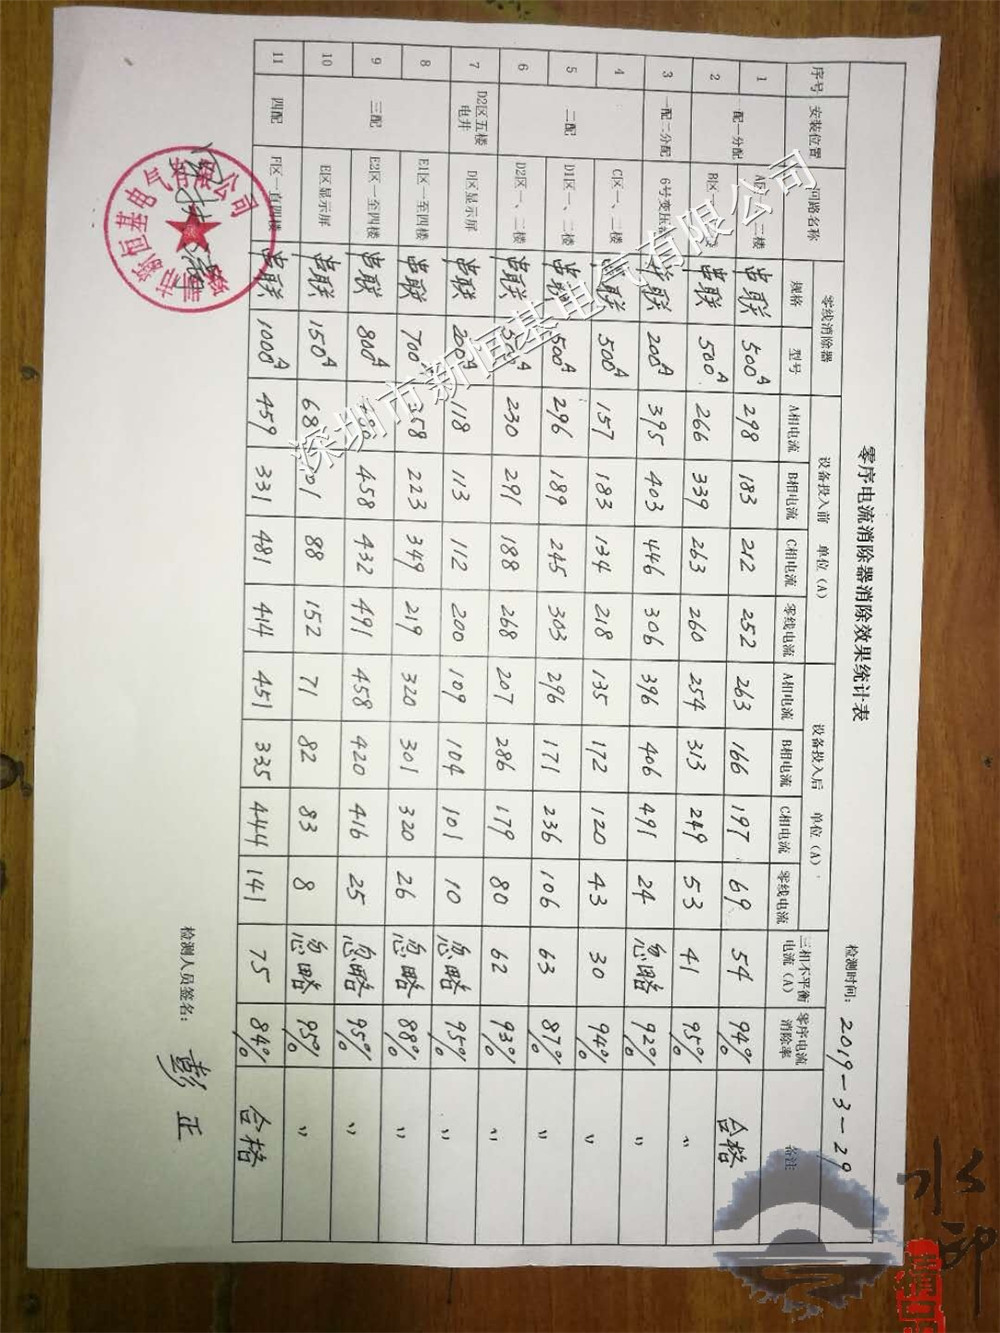 零序电流消除器消除效果统计表
检测时间: 2019-3-29
序号 安装位置 回路名称 零线消除器 设备投入前 单位(A) 设备投入后 单位(A) 三相不平衡电流(A) 零序电流消除率 备注
规格 型号 A相电流 B相电流 C相电流 零线电流 A相电流 B相电流 C相电流 零线电流
1 一配一分配 二楼 串联 500A 298 183 212 252 263 166 197 69 54 94% 合格
2 B区一 楼 串联 500A 266 339 263 260 254 313 249 53 41 95% "
3 一配二分配 6号变压 串联 200A 395 403 446 306 396 406 491 24 忽略 92% "
4 二配 C区一、二楼 串联 500A 157 183 134 218 135 172 120 43 30 94% "
5 D1区一、二楼 串联 500A 296 189 245 303 296 171 236 106 63 87% "
6 D2区一、二楼 串联 230 291 188 268 207 286 179 80 62 93% "
7 D2区五楼电井 D区显示屏 串联 200A 118 113 112 200 109 104 101 10 忽略 95% "
8 三配 E1区一至四楼 串联 700A 258 223 349 219 320 301 320 26 忽略 88% "
9 E2区一至四楼 串联 800A 458 432 491 458 420 416 25 忽略 95% "
10 E区显示屏 串联 150A 68 101 88 152 71 82 83 8 忽略 95% "
11 四配 F区一直四楼 串联 1000A 459 331 481 414 451 335 444 141 75 84% 合格
检测人员签名: 彭正
新恒基电气 公司
深圳市新恒基电气有限公司
水印